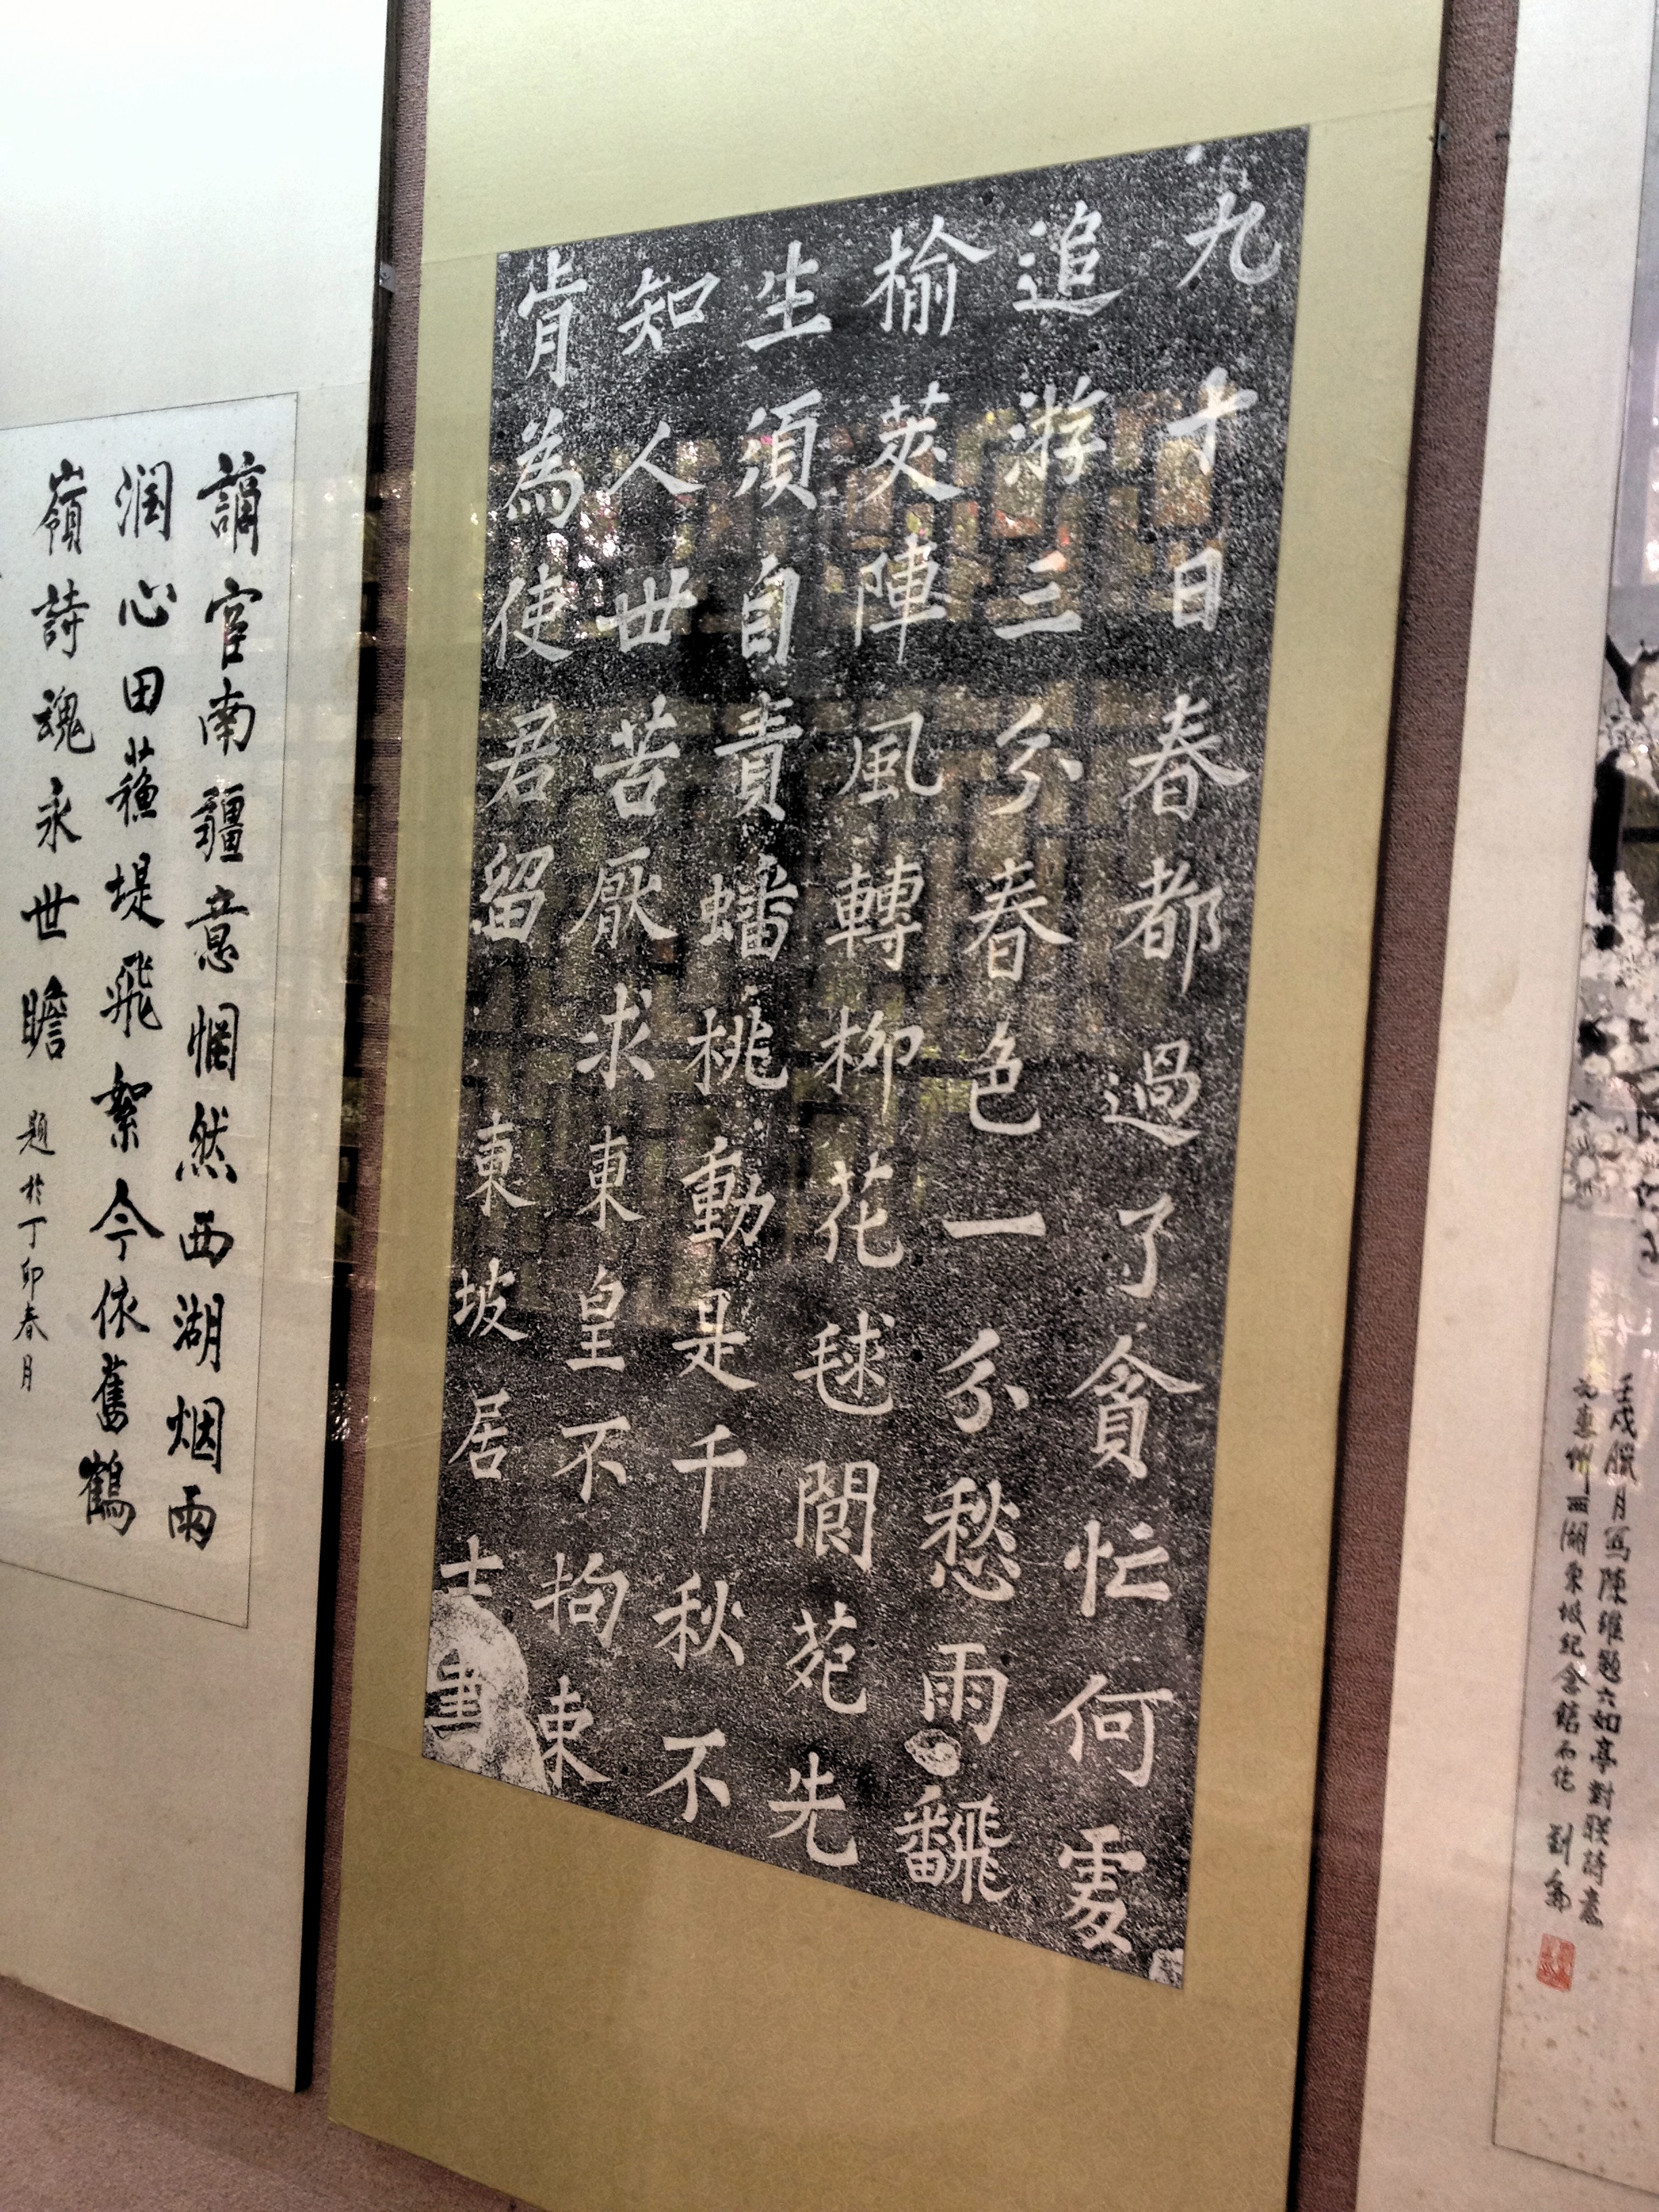 壬戌臘月写陳維题六如亭對联詩意
於惠州西湖東坡紀念館而作 劉侖
九十日春都過了貪忙何處
追游三分春色一分愁雨飜
榆莢陣風轉柳花毬閬苑先
生須自責蟠桃動是千秋不
知人世苦厭求東皇不拘束
肯為使君留 東坡居士書
謫宦南疆意惘然西湖烟雨
润心田蘓堤飛絮今依舊鶴
嶺詩魂永世瞻 题於丁卯春月